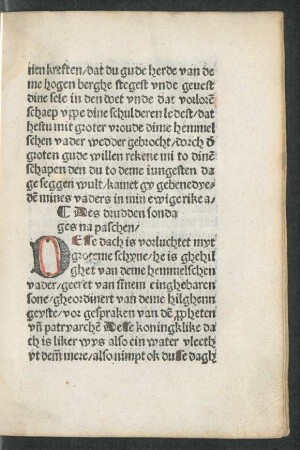 nen kreften/dat du gude herde van de
me hogen berghe stegest vnde geuest
dine sele in den doet vnde dat vorlorē
schaep vppe dine schulderen ledest/dat
hestu mit groter vroude dinē hemmel
schen vader wedder gebrocht/dorch d'
groten gude willen rekene mi to dinē
schapen den du to deme iungesten da
ge seggen wult/kamet gy gebenedye-
den mines vaders in min ewige rike a.
¶ Des drudden sonda
ges na paschen/
DEsse dach is vorluchtet myt
groteme schyne/he is ghehil
ghet van deme hemmelschen
vader/geeret van sinem eingebaren
sone/gheordinert van deme hilghenn
geyste/vor gespraken van dē ꝓpheten
vñ patryarchē Desse koningklike da
ch is liker wys also ein water vleeth
vt dem̄ mere/also nimpt ok dusse dagh